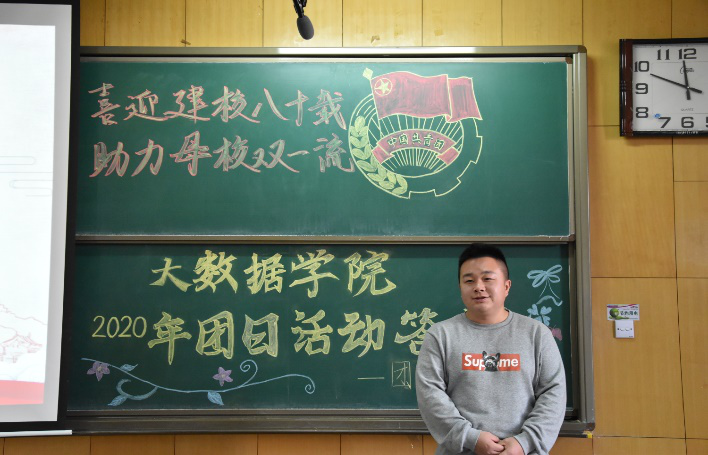 喜迎建校八十载
助力母校双一流
中国共青团
大数据学院
2020年团日活动答
—团
Supreme
11 12
10
9
8
7 6